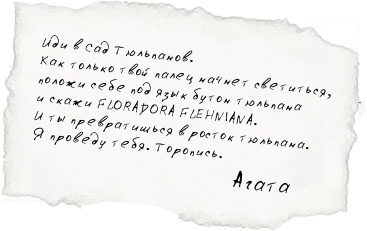 Иди в Сад Тюльпанов.
Как только твой палец начнет светиться,
положи себе под язык бутон тюльпана
и скажи FLORADORA FLEHNIANA.
И ты превратишься в росток тюльпана.
Я проведу тебя. Торопись.
Агата